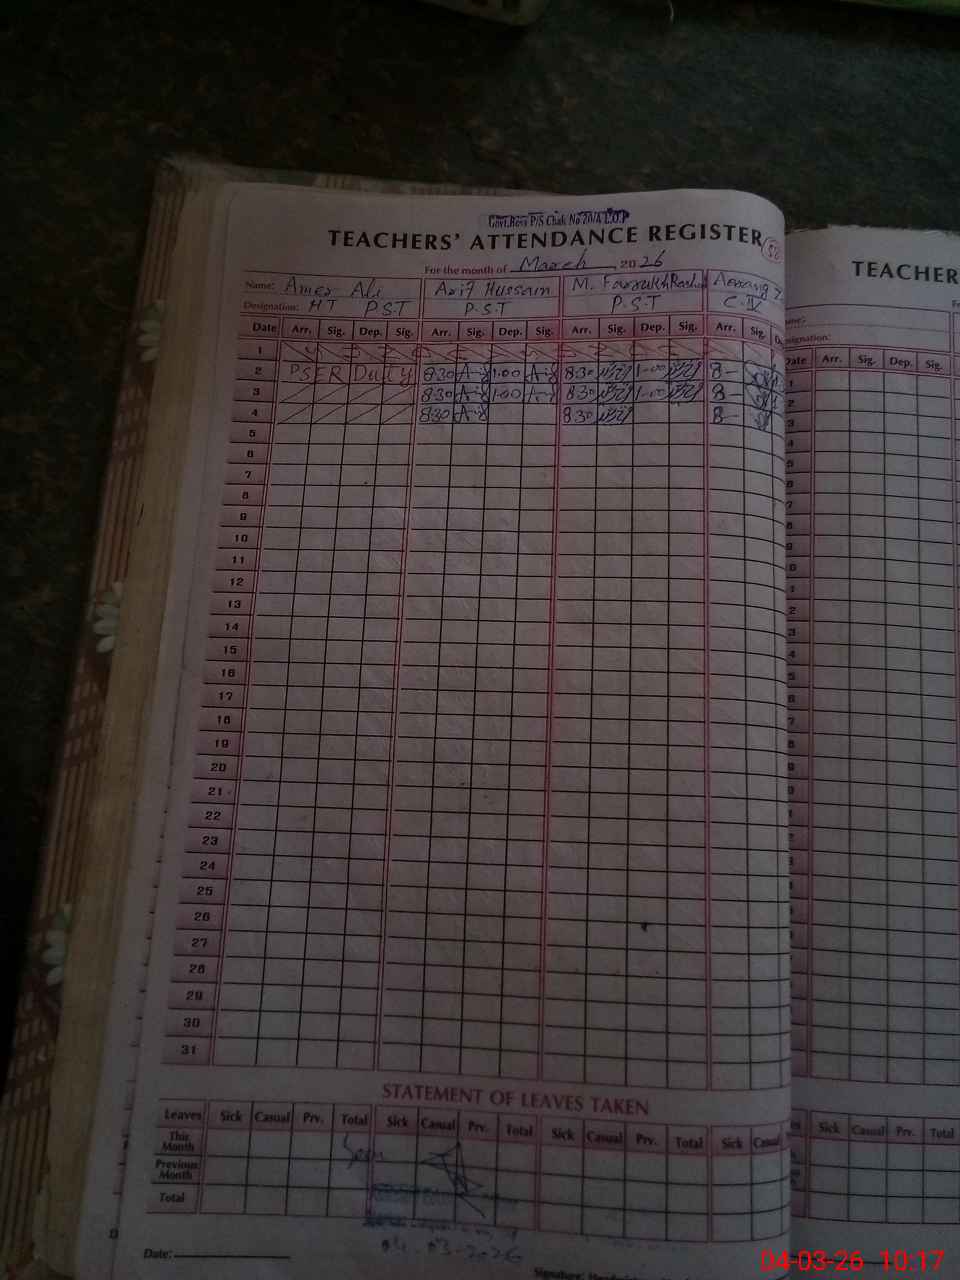 Govt.Boys P/S Chak No 20/A L.O.P
TEACHERS' ATTENDANCE REGISTER
For the month of March 2026
Name: Amer Ali Arif Hussain M. Farrukh Rashid
Designation: HT PST P.S.T P.S.T C-IV
Date Arr. Sig. Dep. Sig. Arr. Sig. Dep. Sig. Arr. Sig. Dep. Sig. Arr. Sig.
1
2 PSER Duty 8:30 Arif 1:00 Arif 8:30 1:00 8-
3 8:30 Arif 1:00 Arif 8:30 1:00 8-
4 8:30 Arif 8:30 8-
5
6
7
8
9
10
11
12
13
14
15
16
17
18
19
20
21
22
23
24
25
26
27
28
29
30
31
STATEMENT OF LEAVES TAKEN
Leaves Sick Casual Prv. Total Sick Casual Prv. Total Sick Casual Prv. Total Sick Casual
This Month
Previous Month
Total
Seen
04-03-2026
Date:
TEACHER
Arr. Sig. Dep. Sig.
Sick Casual Prv. Total
04-03-26 10:17